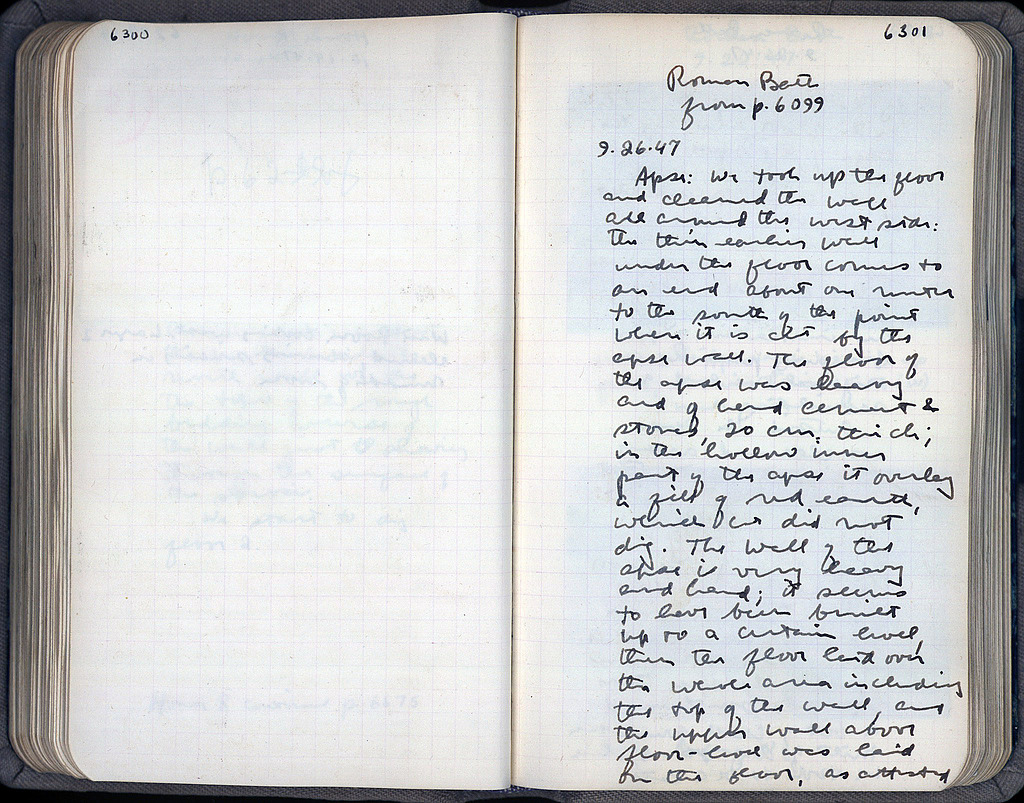 6300
6301
Roman Bath
from p. 6099
9.26.47
Apse: we took up the floor
and cleaned the wall
all around the west side:
the thin earlier wall
under the floor comes to
an end about one meter
to the south of the point
where it is cut by the
apse wall. The floor of
the apse was heavy
and of hard cement &
stones, 20 cm. thick;
in the hollow inner
part of the apse it overlay
a fill of red earth,
which we did not
dig. The wall of the
apse is very heavy
and hard; it seems
to have been built
up to a certain level,
then the floor laid over
the whole area including
the top of the wall, and
the upper wall above
floor-level was laid
on the floor, as attested